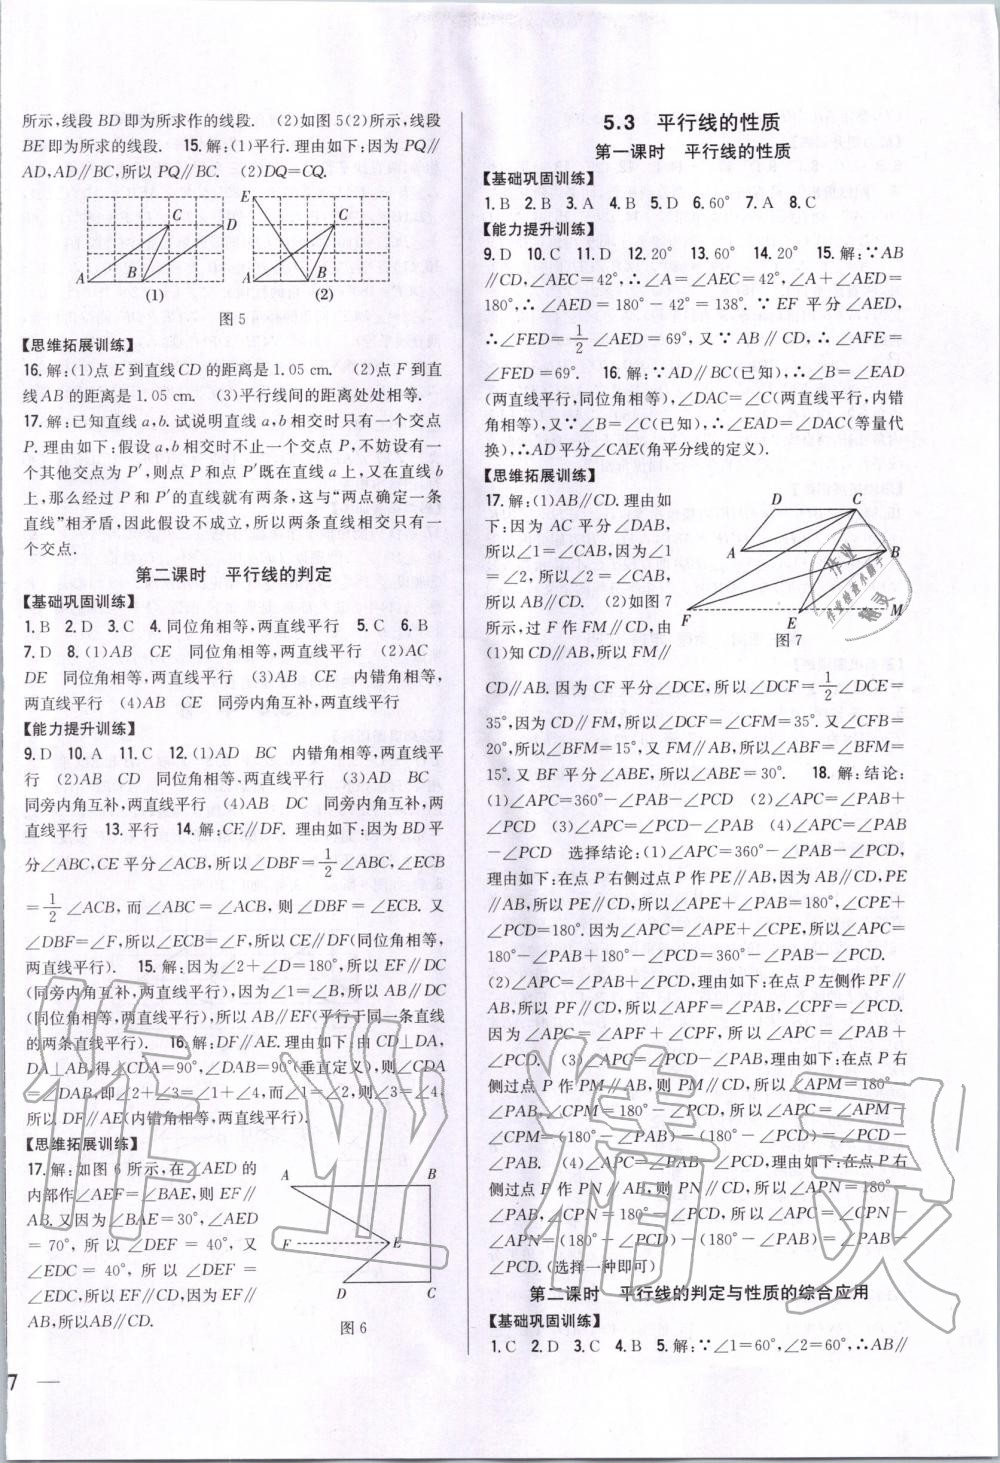 所示,线段BD即为所求作的线段. (2)如图5(2)所示,线段
BE即为所求的线段. 15.解:(1)平行.理由如下:因为PQ∥
AD,AD∥BC,所以PQ∥BC. (2)DQ=CQ.
C D A B (1)
E C A B (2)
图5
【思维拓展训练】
16.解:(1)点E到直线CD的距离是1.05 cm. (2)点F到直
线AB的距离是1.05 cm. (3)平行线间的距离处处相等.
17.解:已知直线a,b.试说明直线a,b相交时只有一个交点
P.理由如下:假设a,b相交时不止一个交点P,不妨设有一
个其他交点为P′,则点P和点P′既在直线a上,又在直线b
上,那么经过P和P′的直线就有两条,这与“两点确定一条
直线”相矛盾,因此假设不成立,所以两条直线相交只有一
个交点.
第二课时 平行线的判定
【基础巩固训练】
1.B 2.D 3.C 4.同位角相等,两直线平行 5.C 6.B
7.D 8.(1)AB CE 同位角相等,两直线平行 (2)AC
DE 同位角相等,两直线平行 (3)AB CE 内错角相等,
两直线平行 (4)AB CE 同旁内角互补,两直线平行
【能力提升训练】
9.D 10.A 11.C 12.(1)AD BC 内错角相等,两直线平
行 (2)AB CD 同位角相等,两直线平行 (3)AD BC
同旁内角互补,两直线平行 (4)AB DC 同旁内角互补,两
直线平行 13.平行 14.解:CE∥DF. 理由如下:因为BD平
分∠ABC,CE平分∠ACB,所以∠DBF=1/2∠ABC,∠ECB
=1/2∠ACB,而∠ABC=∠ACB,则∠DBF=∠ECB. 又
∠DBF=∠F,所以∠ECB=∠F,所以CE∥DF(同位角相等,
两直线平行). 15.解:因为∠2+∠D=180°,所以EF∥DC
(同旁内角互补,两直线平行),因为∠1=∠B,所以AB∥DC
(同位角相等,两直线平行),所以AB∥EF(平行于同一条直线
的两条直线平行). 16.解:DF∥AE.理由如下:由CD⊥DA,
DA⊥AB,得∠CDA=90°,∠DAB=90°(垂直定义),则∠CDA
=∠DAB,即∠2+∠3=∠1+∠4,而∠1=∠2,则∠3=∠4,
所以DF∥AE(内错角相等,两直线平行).
【思维拓展训练】
17.解:如图6所示,在∠AED的
内部作∠AEF=∠BAE,则EF∥
AB.又因为∠BAE=30°,∠AED
=70°,所以∠DEF=40°,又
∠EDC=40°,所以∠DEF=
∠EDC,所以EF∥CD,因为EF∥
AB,所以AB∥CD.
A B F E D C
图6
7
5.3 平行线的性质
第一课时 平行线的性质
【基础巩固训练】
1.B 2.B 3.A 4.B 5.D 6.60° 7.A 8.C
【能力提升训练】
9.D 10.C 11.D 12.20° 13.60° 14.20° 15.解:∵AB
∥CD,∠AEC=42°,∴∠A=∠AEC=42°,∠A+∠AED=
180°,∴∠AED=180°-42°=138°. ∵EF平分∠AED,
∴∠FED=1/2∠AED=69°,又∵AB∥CD,∴∠AFE=
∠FED=69°. 16.解:∵AD∥BC(已知),∴∠B=∠EAD
(两直线平行,同位角相等),∠DAC=∠C(两直线平行,内错
角相等),又∵∠B=∠C(已知),∴∠EAD=∠DAC(等量代
换),∴AD平分∠CAE(角平分线的定义).
【思维拓展训练】
17.解:(1)AB∥CD.理由如
下:因为AC平分∠DAB,
所以∠1=∠CAB,因为∠1
=∠2,所以∠2=∠CAB,
所以AB∥CD. (2)如图7
所示,过F作FM∥CD,由
(1)知CD∥AB,所以FM∥
D C A B F E M
图7
CD∥AB.因为CF平分∠DCE,所以∠DCF=1/2∠DCE=
35°,因为CD∥FM,所以∠DCF=∠CFM=35°. 又∠CFB=
20°,所以∠BFM=15°,又FM∥AB,所以∠ABF=∠BFM=
15°.又BF平分∠ABE,所以∠ABE=30°. 18.解:结论:
(1)∠APC=360°-∠PAB-∠PCD (2)∠APC=∠PAB+
∠PCD (3)∠APC=∠PCD-∠PAB (4)∠APC=∠PAB
-∠PCD 选择结论:(1)∠APC=360°-∠PAB-∠PCD,
理由如下:在点P右侧过点P作PE∥AB,因为AB∥CD,PE
∥AB,所以PE∥CD,所以∠APE+∠PAB=180°,∠CPE+
∠PCD=180°.因为∠APC=∠APE+∠CPE,所以∠APC=
180°-∠PAB+180°-∠PCD=360°-∠PAB-∠PCD.
(2)∠APC=∠PAB+∠PCD,理由如下:在点P左侧作PF∥
AB,所以PF∥CD,所以∠APF=∠PAB,∠CPF=∠PCD.
因为∠APC=∠APF+∠CPF,所以∠APC=∠PAB+
∠PCD. (3)∠APC=∠PCD-∠PAB,理由如下:在点P右
侧过点P作PM∥AB,则PM∥CD,所以∠APM=180°-
∠PAB,∠CPM=180°-∠PCD,所以∠APC=∠APM-
∠CPM=(180°-∠PAB)-(180°-∠PCD)=∠PCD-
∠PAB. (4)∠APC=∠PAB-∠PCD,理由如下:在点P右
侧过点P作PN∥AB,则PN∥CD,所以∠APN=180°-
∠PAB,∠CPN=180°-∠PCD,所以∠APC=∠CPN-
∠APN=(180°-∠PCD)-(180°-∠PAB)=∠PAB-
∠PCD.(选择一种即可)
第二课时 平行线的判定与性质的综合应用
【基础巩固训练】
1.C 2.D 3.C 4.B 5.解:∵∠1=60°,∠2=60°,∴AB∥
作业精灵